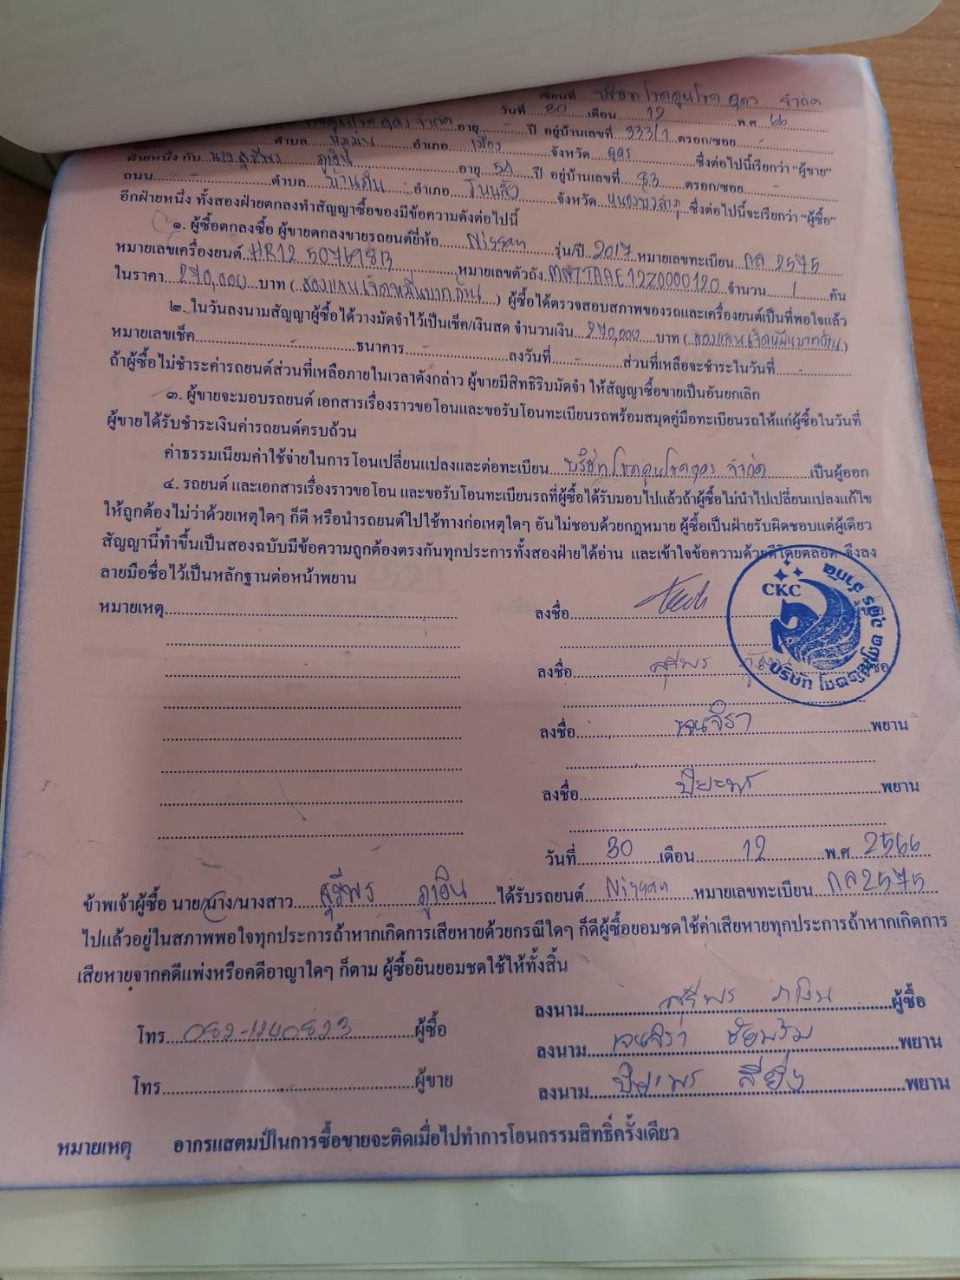 เขียนที่ บริษัท โชคคูนโชค อุดร จำกัด
วันที่ 30 เดือน 12 พ.ศ. 66
โชคคูนโชค อุดร จำกัด อายุ ปี อยู่บ้านเลขที่ 333/1 ตรอก/ซอย
ตำบล อำเภอ เมือง จังหวัด อุดร ซึ่งต่อไปนี้เรียกว่า “ผู้ขาย”
ฝ่ายหนึ่ง กับ นาง สุรีพร อายุ 51 ปี อยู่บ้านเลขที่ 83 ตรอก/ซอย
ถนน ตำบล บ้านถิ่น อำเภอ โนนสัง จังหวัด หนองบัวลำภู ซึ่งต่อไปนี้จะเรียกว่า “ผู้ซื้อ”
อีกฝ่ายหนึ่ง ทั้งสองฝ่ายตกลงทำสัญญาซื้อของมีข้อความดังต่อไปนี้
๑. ผู้ซื้อตกลงซื้อ ผู้ขายตกลงขายรถยนต์ยี่ห้อ Nissan รุ่น/ปี 2017 หมายเลขทะเบียน กล 2575
หมายเลขเครื่องยนต์ HR12 507698B หมายเลขตัวถัง MNTTAAE12Z0000120 จำนวน 1 คัน
ในราคา 270,000 บาท (สองแสนเจ็ดหมื่นบาทถ้วน) ผู้ซื้อได้ตรวจสอบสภาพของรถและเครื่องยนต์เป็นที่พอใจแล้ว
๒. ในวันลงนามสัญญาผู้ซื้อได้วางมัดจำไว้เป็นเช็ค/เงินสด จำนวนเงิน 270,000 บาท (สองแสนเจ็ดหมื่นบาทถ้วน)
หมายเลขเช็ค ธนาคาร ลงวันที่ ส่วนที่เหลือจะชำระในวันที่
ถ้าผู้ซื้อไม่ชำระค่ารถยนต์ส่วนที่เหลือภายในเวลาดังกล่าว ผู้ขายมีสิทธิริบมัดจำ ให้สัญญาซื้อขายเป็นอันยกเลิก
๓. ผู้ขายจะมอบรถยนต์ เอกสารเรื่องราวขอโอนและขอรับโอนทะเบียนรถพร้อมสมุดคู่มือทะเบียนรถให้แก่ผู้ซื้อในวันที่
ผู้ขายได้รับชำระเงินค่ารถยนต์ครบถ้วน
ค่าธรรมเนียมค่าใช้จ่ายในการโอนเปลี่ยนแปลงและต่อทะเบียน บริษัท โชคคูนโชคอุดร จำกัด เป็นผู้ออก
๔. รถยนต์ และเอกสารเรื่องราวขอโอน และขอรับโอนทะเบียนรถที่ผู้ซื้อได้รับมอบไปแล้วถ้าผู้ซื้อไม่นำไปเปลี่ยนแปลงแก้ไข
ให้ถูกต้องไม่ว่าด้วยเหตุใดๆ ก็ดี หรือนำรถยนต์ไปใช้ทางก่อเหตุใดๆ อันไม่ชอบด้วยกฎหมาย ผู้ซื้อเป็นฝ่ายรับผิดชอบแต่ผู้เดียว
สัญญานี้ทำขึ้นเป็นสองฉบับมีข้อความถูกต้องตรงกันทุกประการทั้งสองฝ่ายได้อ่าน และเข้าใจข้อความด้วยดีโดยตลอด จึงลง
ลายมือชื่อไว้เป็นหลักฐานต่อหน้าพยาน
หมายเหตุ ลงชื่อ
CKC
ลงชื่อ สุรีพร
ลงชื่อ เจนจิรา พยาน
ลงชื่อ ปิยะพร พยาน
วันที่ 30 เดือน 12 พ.ศ. 2566
ข้าพเจ้าผู้ซื้อ นาย/นาง/นางสาว สุรีพร ได้รับรถยนต์ Nissan หมายเลขทะเบียน กล 2575
ไปแล้วอยู่ในสภาพพอใจทุกประการถ้าหากเกิดการเสียหายด้วยกรณีใดๆ ก็ดีผู้ซื้อยอมชดใช้ค่าเสียหายทุกประการถ้าหากเกิดการ
เสียหายจากคดีแพ่งหรือคดีอาญาใดๆ ก็ตาม ผู้ซื้อยินยอมชดใช้ให้ทั้งสิ้น
ลงนาม สุรีพร ผู้ซื้อ
โทร 062-1240823 ผู้ซื้อ
ลงนาม เจนจิรา พยาน
โทร ผู้ขาย
ลงนาม ปิยะพร พยาน
หมายเหตุ อากรแสตมป์ในการซื้อขายจะติดเมื่อไปทำการโอนกรรมสิทธิ์ครั้งเดียว